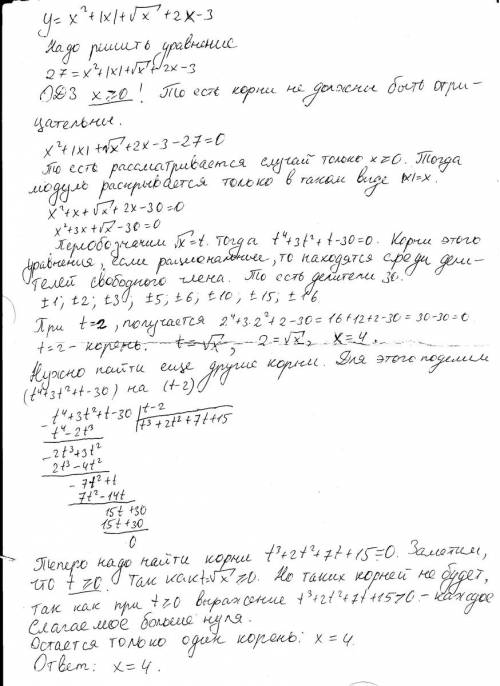 y = x² + |x| + √x + 2x - 3
Надо решить уравнение
27 = x² + |x| + √x + 2x - 3
ОДЗ x ≥ 0 ! То есть корни не должны быть отри-
цательны.
x² + |x| + √x + 2x - 3 - 27 = 0
То есть рассматривается случай только x ≥ 0. Тогда
модуль раскрывается только в таком виде |x| = x.
x² + x + √x + 2x - 30 = 0
x² + 3x + √x - 30 = 0
Переобозначим √x = t. Тогда t⁴ + 3t² + t - 30 = 0. Корни этого
уравнения, если рациональные, то находятся среди дели-
телей свободного члена. То есть делители 30.
±1; ±2; ±3; ±5; ±6; ±10; ±15; ±16.
При t = 2, получается 2⁴ + 3·2² + 2 - 30 = 16 + 12 + 2 - 30 = 30 - 30 = 0
t = 2 - корень. t = √x, 2 = √x, x = 4.
Нужно найти еще другие корни. Для этого поделим
(t⁴ + 3t² + t - 30) на (t - 2)
- t⁴ + 3t² + t - 30 | t - 2
t⁴ - 2t³ t³ + 2t² + 7t + 15
- 2t³ + 3t²
2t³ - 4t²
- 7t² + t
7t² - 14t
15t + 30
15t + 30
0
Теперо надо найти корни t³ + 2t² + 7t + 15 = 0. Заметим,
что t ≥ 0. Так как t = √x ≥ 0. Но таких корней не будет,
так как при t ≥ 0 выражение t³ + 2t² + 7t + 15 > 0 - каждое
слагаемое больше нуля.
Остается только один корень: x = 4.
Ответ: x = 4.